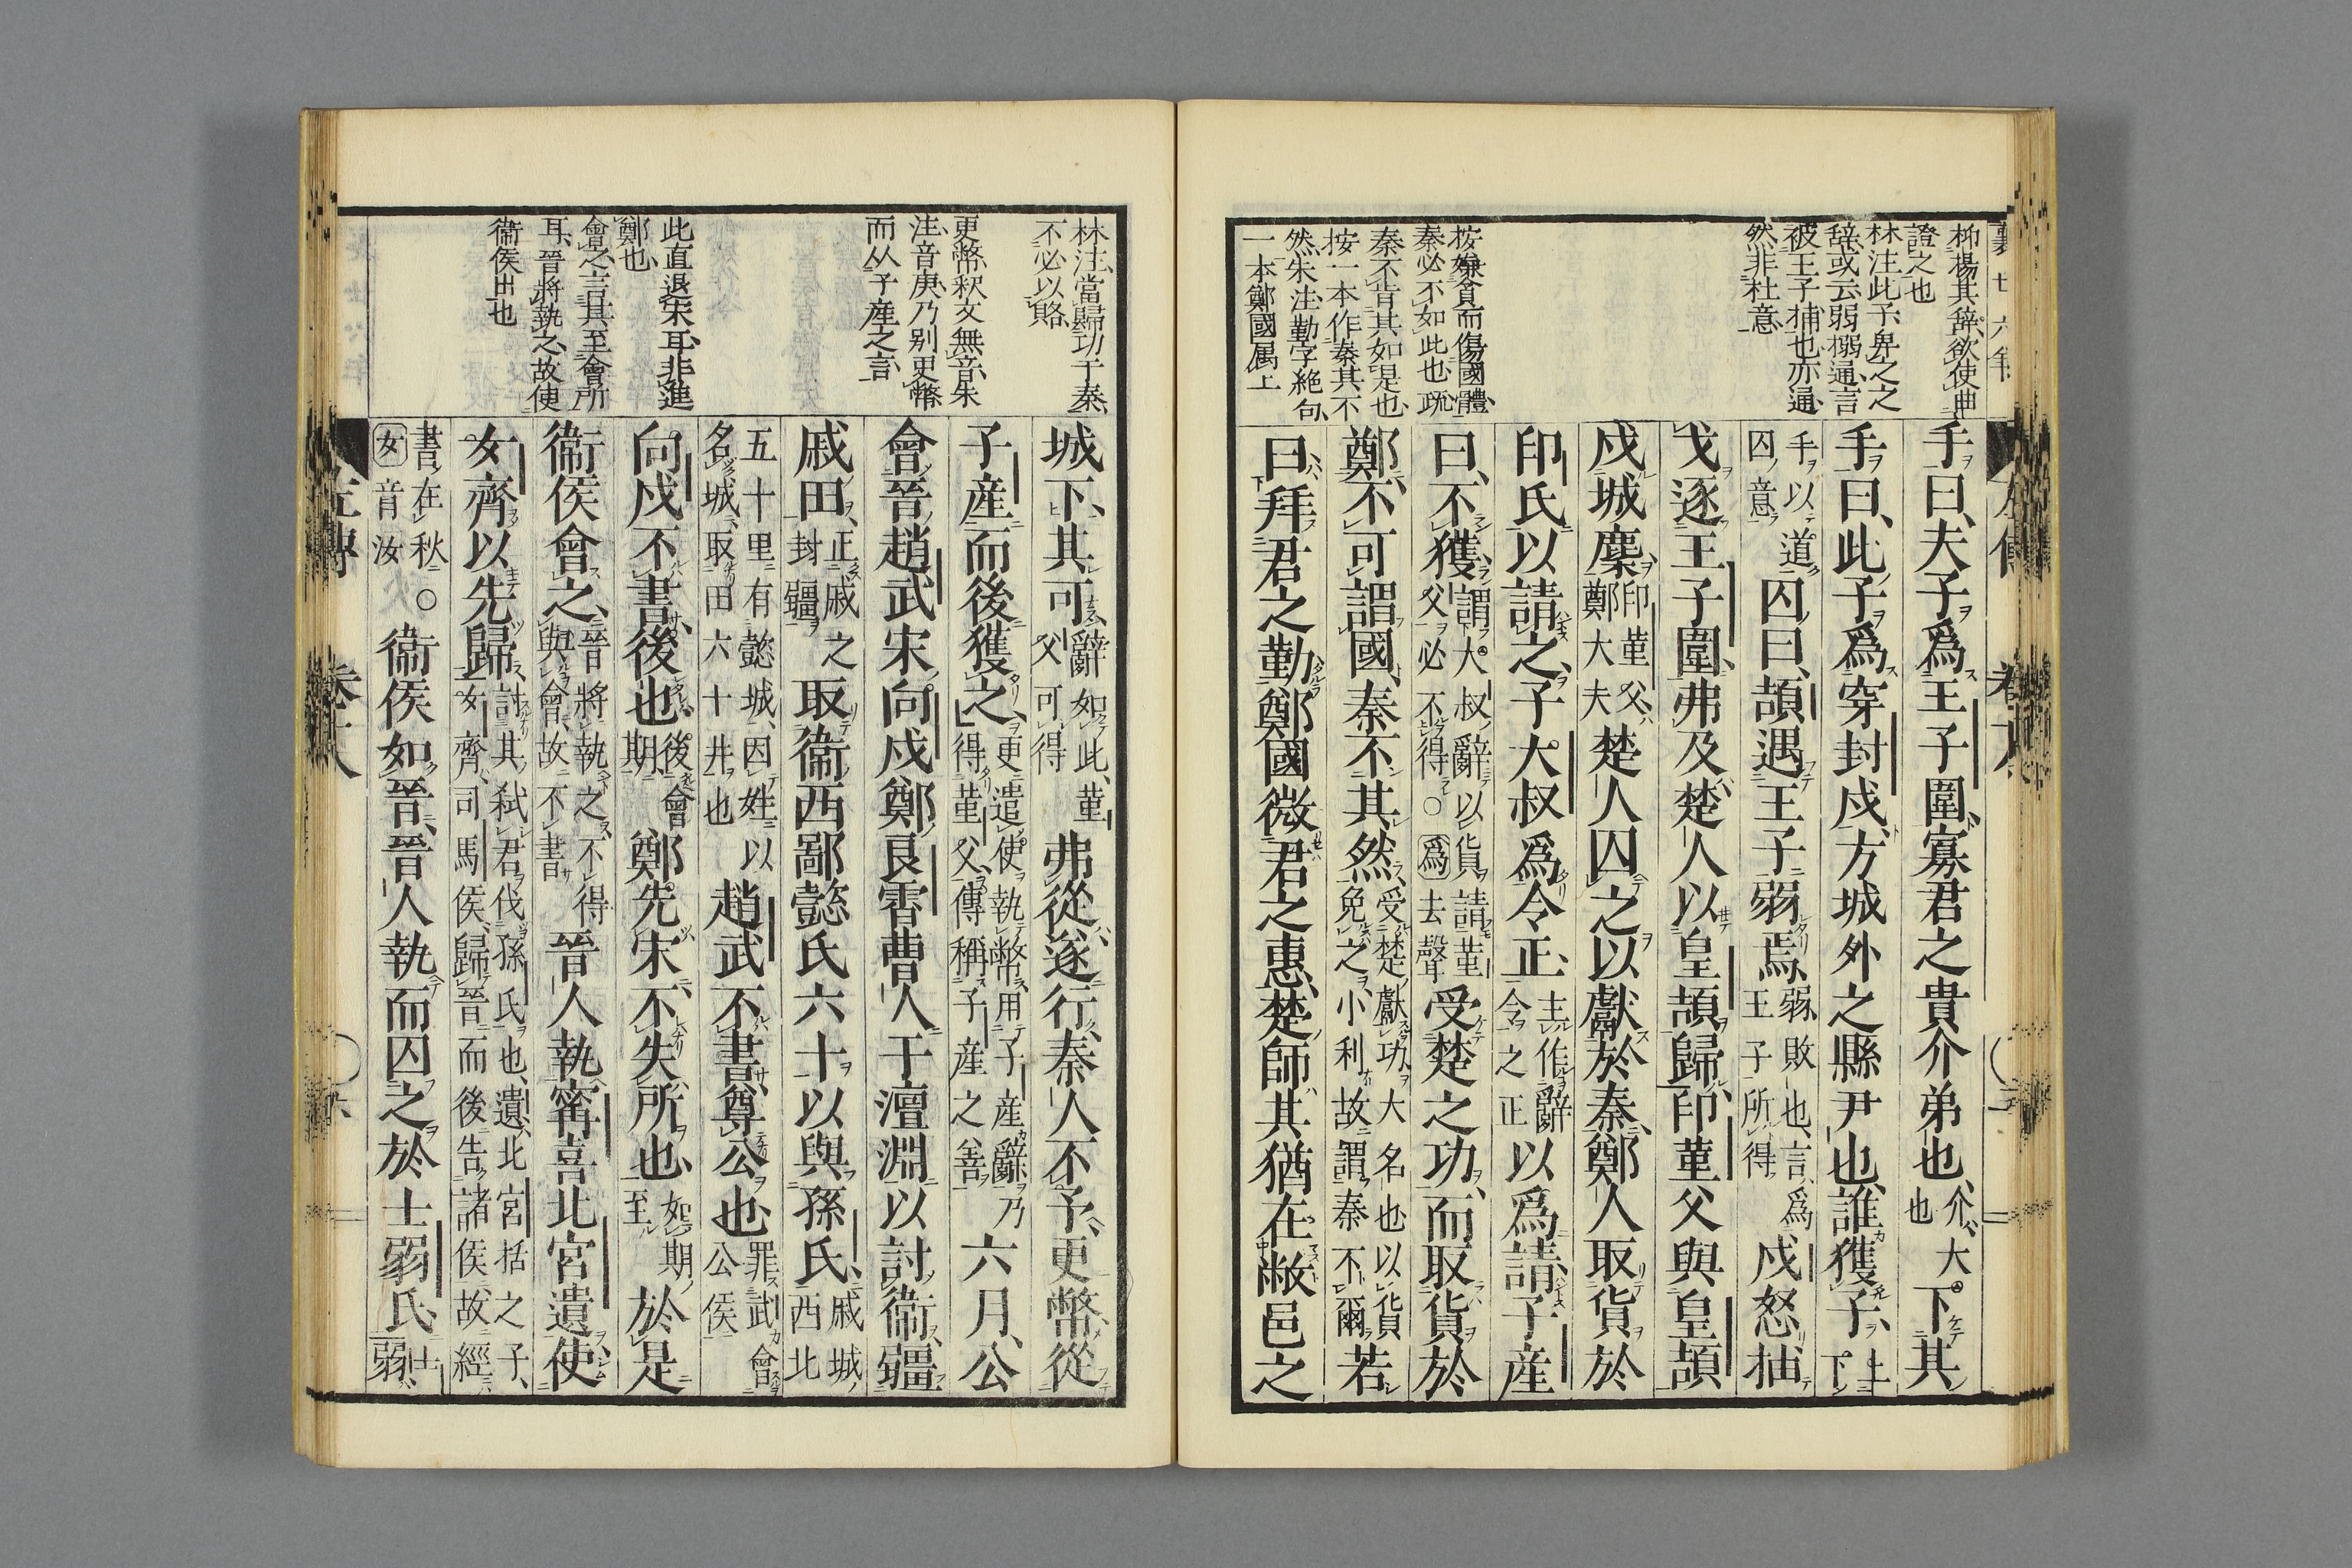 襄廿六年
柳楊其辞欲使曲
證之也
林注此子之之
辞或云弱搦通言
被王子捕也亦通
然非杜意
按嫌貪而傷國體
秦必不如此也疏
秦不肯其如是也
按一本作秦其不
然朱注勤字絶句
一本鄭國属上
手曰夫子爲王子圍寡君之貴介弟也介大也下其
手曰此子爲穿封戌方城外之縣尹也誰獲子上下
手以道囚意囚曰頡遇王子弱焉弱敗也言爲王子所得戌怒抽
戈逐王子圍弗及楚人以皇頡歸印菫父與皇頡
戍城麇印菫父鄭大夫楚人囚之以獻於秦鄭人取貨於
印氏以請之子大叔爲令正主作辭令之正以爲請子產
曰不獲謂大叔辭以貨請菫父必不得○爲去聲受楚之功而取貨於
鄭不可謂國秦不其然受楚獻功大名也以貨免之小利故謂秦不爾若
曰拜君之勤鄭國微君之惠楚師其猶在敝邑之
林注當歸功于秦
不必以賂
更幣釈文無音朱
注音庚乃別更幣
而从子產之言
此直退宋耳非進
鄭也
會之言其至會所
耳晉將執之故使
衞侯出也
城下其可辭如此菫父可得弗從遂行秦人不予更幣從
子產而後獲之更遣使執幣用子產辭乃得菫父傳稱子產之善六月公
會晉趙武宋向戌鄭良霄曹人于澶淵以討衞疆
戚田正戚之封疆取衞西鄙懿氏六十以與孫氏戚城西北
五十里有懿城因姓以名城取田六十井也趙武不書尊公也罪武會公侯
向戌不書後也後會期鄭先宋不失所也如期至於是
衞侯會之晉將執之不得與會故不書晉人執甯喜北宮遺使
女齊以先歸討其弒君伐孫氏也遺北宮括之子女齊司馬侯歸晉而後告諸侯故經
書在秋女音汝○衞侯如晉晉人執而囚之於士弱氏士弱